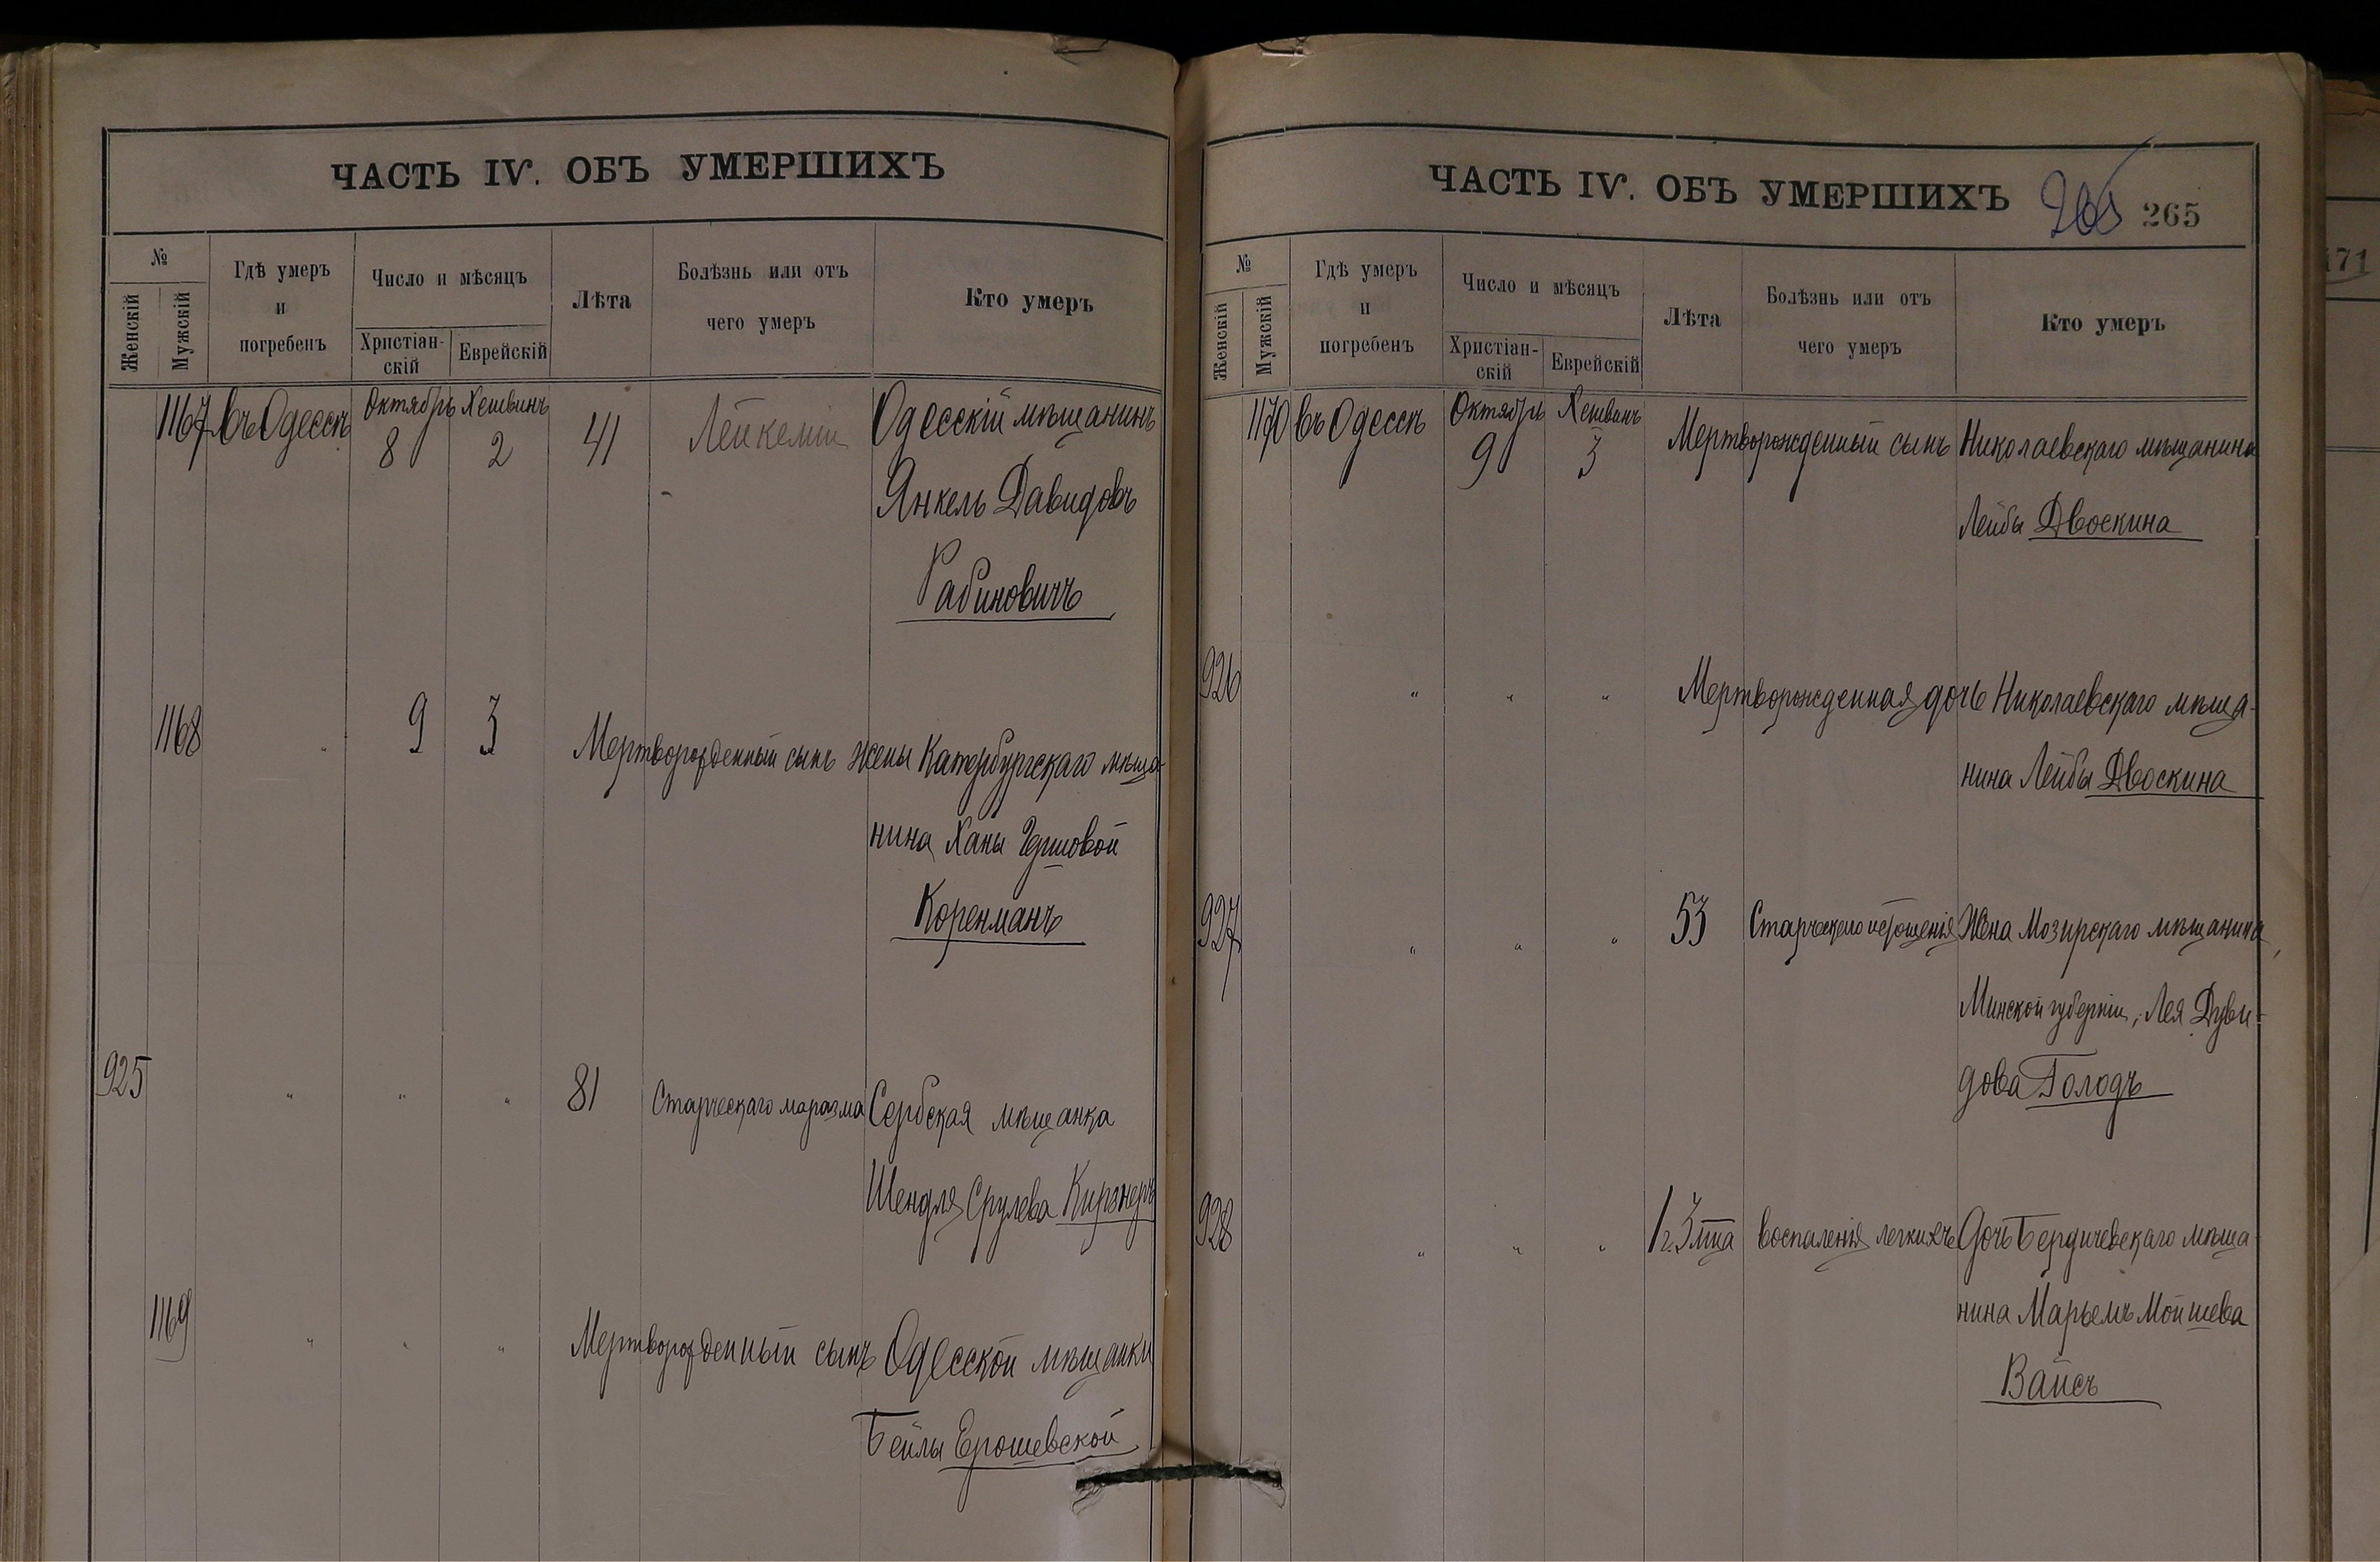 ЧАСТЬ IV. ОБЪ УМЕРШИХЪ
№
Женскій
Мужскій
Гдѣ умеръ
и
погребенъ
Число и мѣсяцъ
Христіан-
скій
Еврейскій
Лѣта
Болѣзнь или отъ
чего умеръ
Кто умеръ
1167 въ Одессѣ Октябрь 8 Хешвинъ 2 41 Лейкеміи Одесскій мѣщанинъ
Янкель Давидовъ
Рабиновичъ
1168 " 9 3 Мертворожденный сынъ жены Катербургскаго мѣща-
нина Ханы Гершовой
Коренманъ
925 " " " 81 Старческаго маразма Сербская мѣщанка
Шендля Срулева Киржнеръ
1169 " " " Мертворожденный сынъ Одесской мѣщанки
Бейлы Ерошевской
ЧАСТЬ IV. ОБЪ УМЕРШИХЪ 265 265
№
Женскій
Мужскій
Гдѣ умеръ
и
погребенъ
Число и мѣсяцъ
Христіан-
скій
Еврейскій
Лѣта
Болѣзнь или отъ
чего умеръ
Кто умеръ
1170 въ Одессѣ Октябрь 9 Хешванъ 3 Мертворожденный сынъ Николаевскаго мѣщанина
Лейбы Двоскина
926 " " " Мертворожденная дочь Николаевскаго мѣща-
нина Лейбы Двоскина
927 " " " 53 Старческаго истощенія Жена Мозирскаго мѣщанина,
Минской губерніи, Лея Дуви-
дова Голодъ
928 " " " 1 г. 3 мца воспаленія легкихъ Дочь Бердичевскаго мѣща-
нина Марьемъ Мойшева
Вайсъ
171